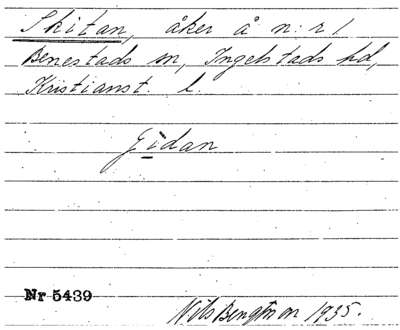 Skitan, åker å n:r 1
Benestads sn, Ingelstads hd,
Kristianst. l.
Gidan
Nr 5439
Nils Bengtsson 1935.